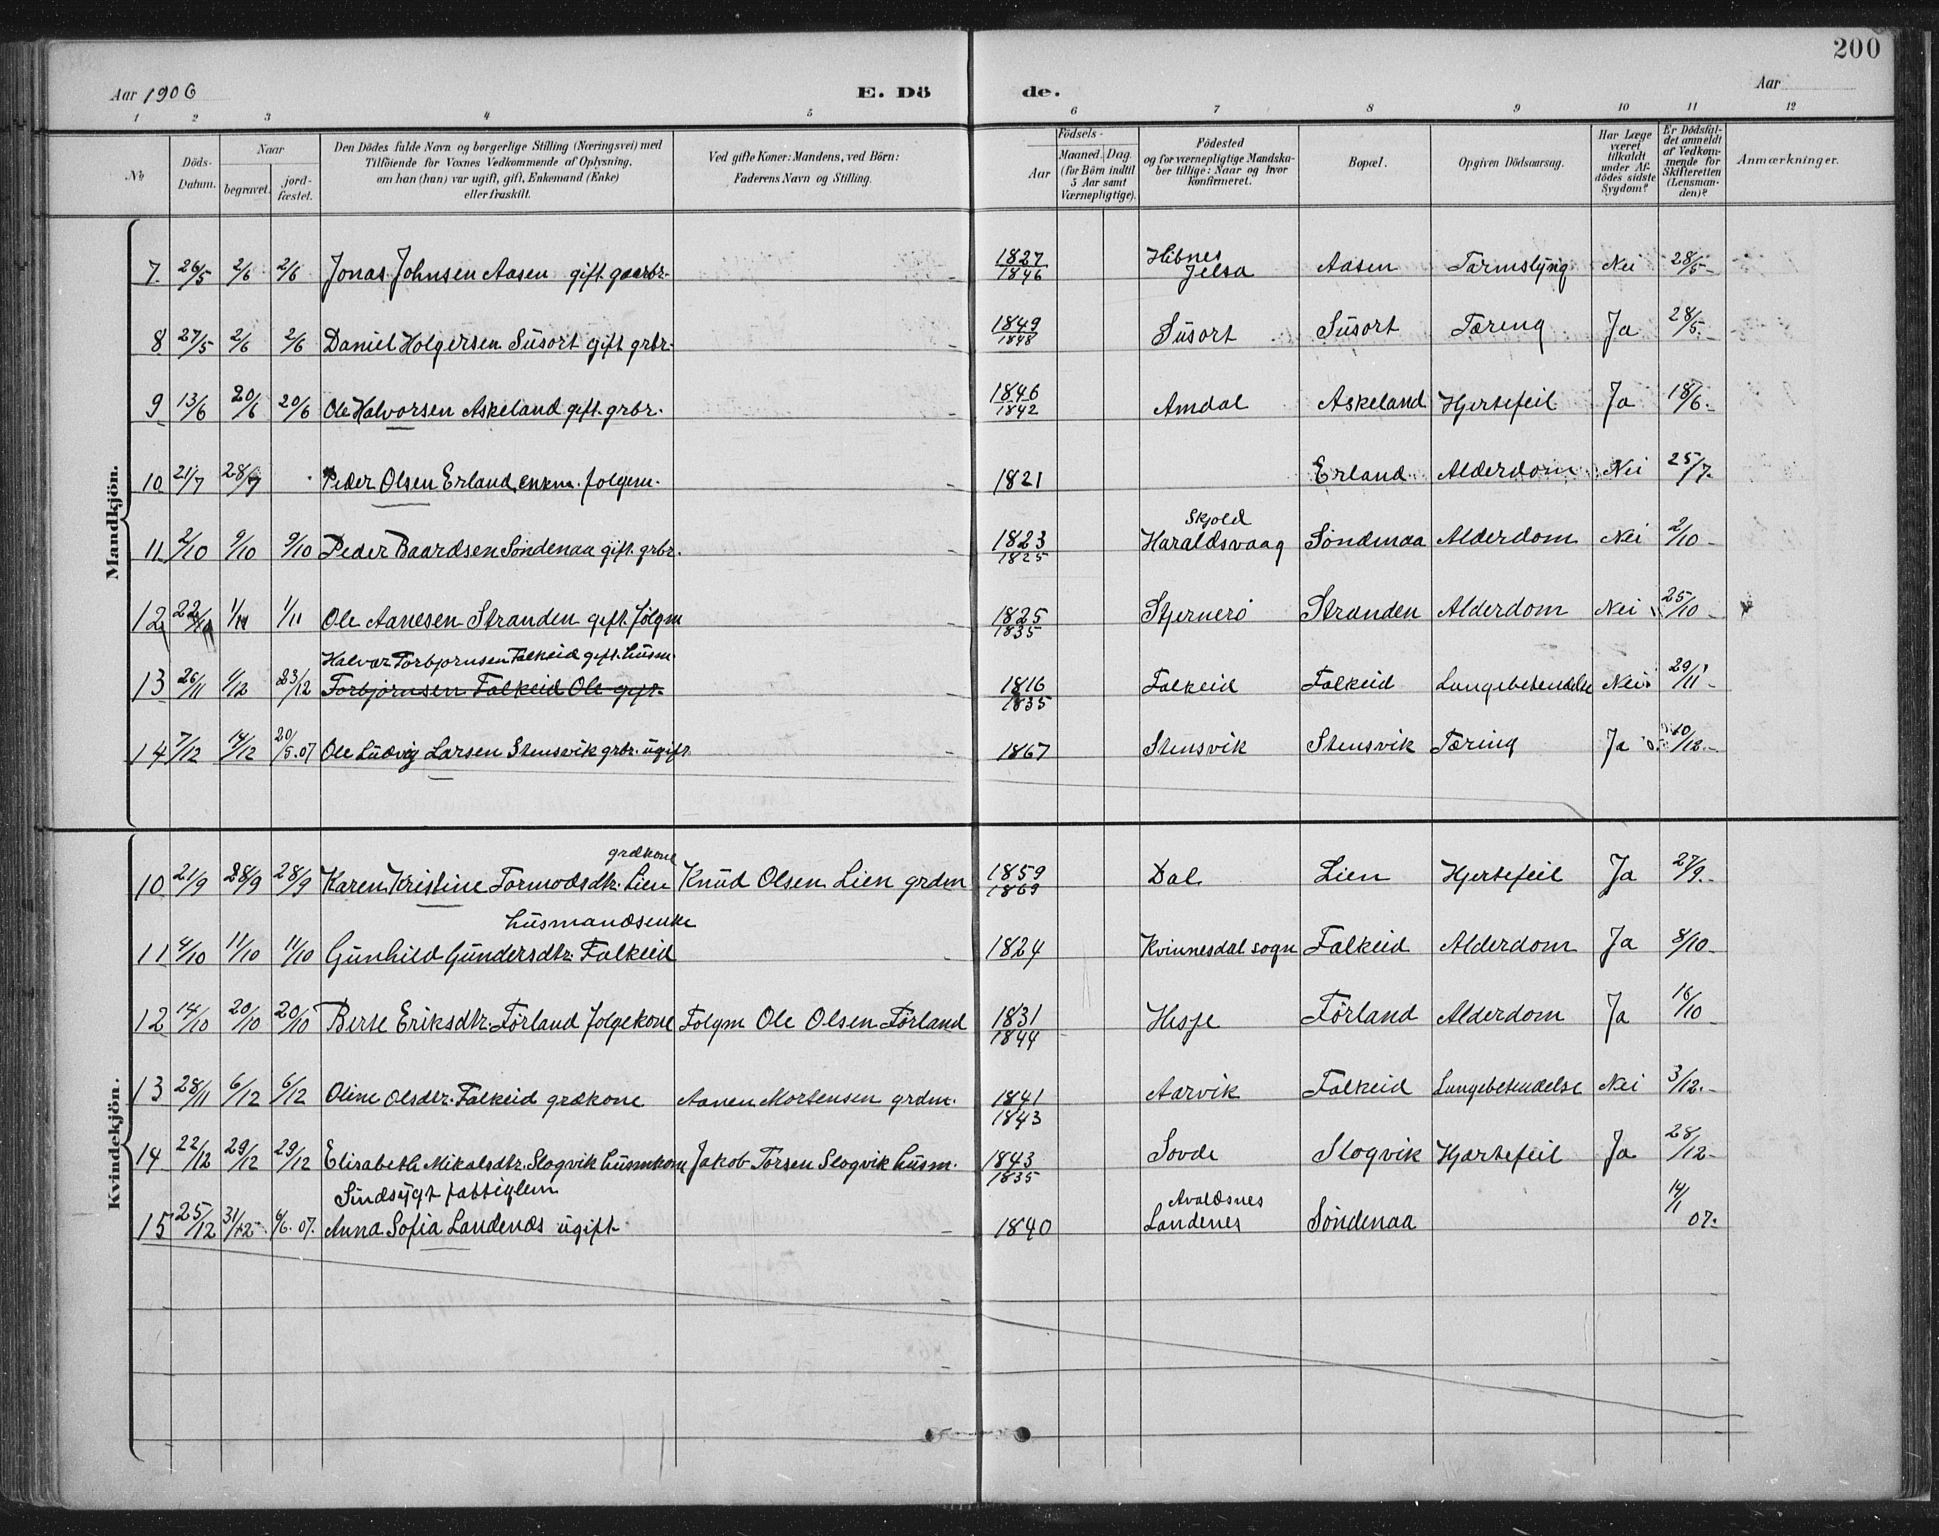 200
Aar 1906 E. Dö de. Aar
1 2 3 4 5 6 7 8 9 10 11 12
No
Döds-Datum.
Naar
begravet.
jord-fæstet.
Den Dödes fulde Navn og borgerlige Stilling (Næringsvei) med
Tilföiende for Voxnes Vedkommende af Oplysning,
om han (hun) var ugift, gift, Enkemand (Enke)
eller fraskilt.
Ved gifte Koner: Mandens, ved Börn:
Faderens Navn og Stilling.
Födsels-
Aar
Maaned. Dag.
(for Börn indtil
5 Aar samt
Værnepligtige).
Födested
og for værnepligtige Mandska-
ber tillige: Naar og hvor
konfirmeret.
Bopæl.
Opgiven Dödsaarsag.
Har Læge
været
tilkaldt
under Af-
dödes sidste
Sygdom?
Er Dödsfal-
det anmeldt
af Vedkom-
mende for
Skifteretten
(Lensman-
den)?
Anmærkninger.
Mandkjön.
7 26/5 2/6 2/6 Jonas Johnsen Aasen gift gaarbr. - 1827/1846 Hibnes Jelsa Aasen Tarmslyng Nei 28/5 -
8 27/5 2/6 2/6 Daniel Holgersen Susort gift grbr. - 1849/1848 Susort Susort Tæring Ja 28/5 -
9 13/6 20/6 20/6 Ole Halvorsen Askeland gift grbr. - 1846/1842 Amdal Askeland Hjertefeil Ja 18/6 -
10 21/7 28/7 Peder Olsen Erland enkm. folgem. - 1821 Erland Alderdom Nei 25/7 -
11 2/10 9/10 9/10 Peder Baardsen Søndenaa gift grbr. - 1823/1825 Skjold Haraldsvaag Søndenaa Alderdom Nei 2/10 -
12 22/10 1/11 1/11 Ole Aanesen Stranden gift følgm - 1825/1835 Stjernerø Stranden Alderdom Nei 25/10 -
Halvor Torbjørnsen Falkeid gift husm.
13 26/11 1/12 23/12 Torbjørnsen Falkeid Ole gift. - 1816/1835 Falkeid Falkeid Lungebetændelse Nei 29/11 -
14 7/12 14/12 20/5.07 Ole Ludvig Larsen Stensvik grbr. ugift - 1867 Stensvik Stensvik Tæring Ja 10/12 -
Kvindekjön.
grdkone
10 21/9 28/9 28/9 Karen Kristine Tormodsdtr. Lien Knud Olsen Lien grdm 1859/1869 Dal Lien Hjertefeil Ja 27/9 -
husmandsenke
11 4/10 11/10 11/10 Gunhild Gundersdtr. Falkeid - 1824 Kvinnesdal sogn Falkeid Alderdom Ja 8/10 -
12 14/10 20/10 20/10 Berte Eriksdtr. Førland folgekone Folgm Ole Olsen Førland 1831/1844 Hesje Førland Alderdom Ja 16/10 -
13 28/11 6/12 6/12 Oline Olsdtr. Falkeid grdkone Aanen Mortensen grdm. 1841/1843 Aarvik Falkeid Lungebetændelse Nei 3/12 -
14 22/12 29/12 29/12 Elisabeth Mikalsdtr. Slogvik husmkone Jakob Torsen Slogvik husm. 1843/1835 Sovde Slogvik Hjertefeil Ja 28/12 -
Sindsygt fattiglem
15 25/12 31/12 6/6.07. Anna Sofia Landenæs ugift - 1840 Avaldsnes Landenes Søndenaa 14/1 07.